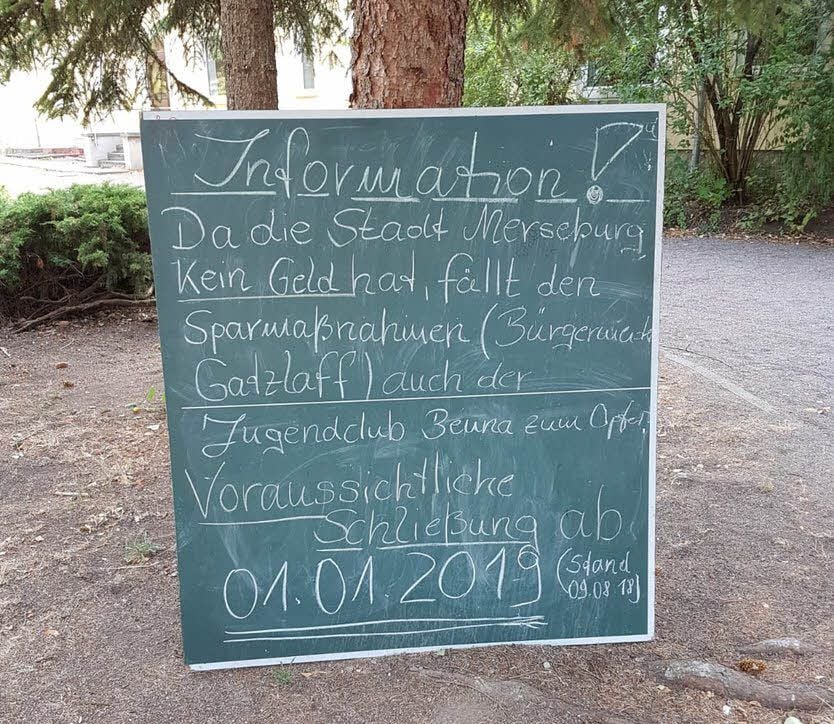 Information!
Da die Stadt Merseburg
Kein Geld hat, fällt den
Sparmaßnahmen (
Gatzlaff) auch der
Jugendclub Beuna zum Opfer.
Voraussichtliche
Schließung ab
01.01.2019 (Stand
09.08.18)